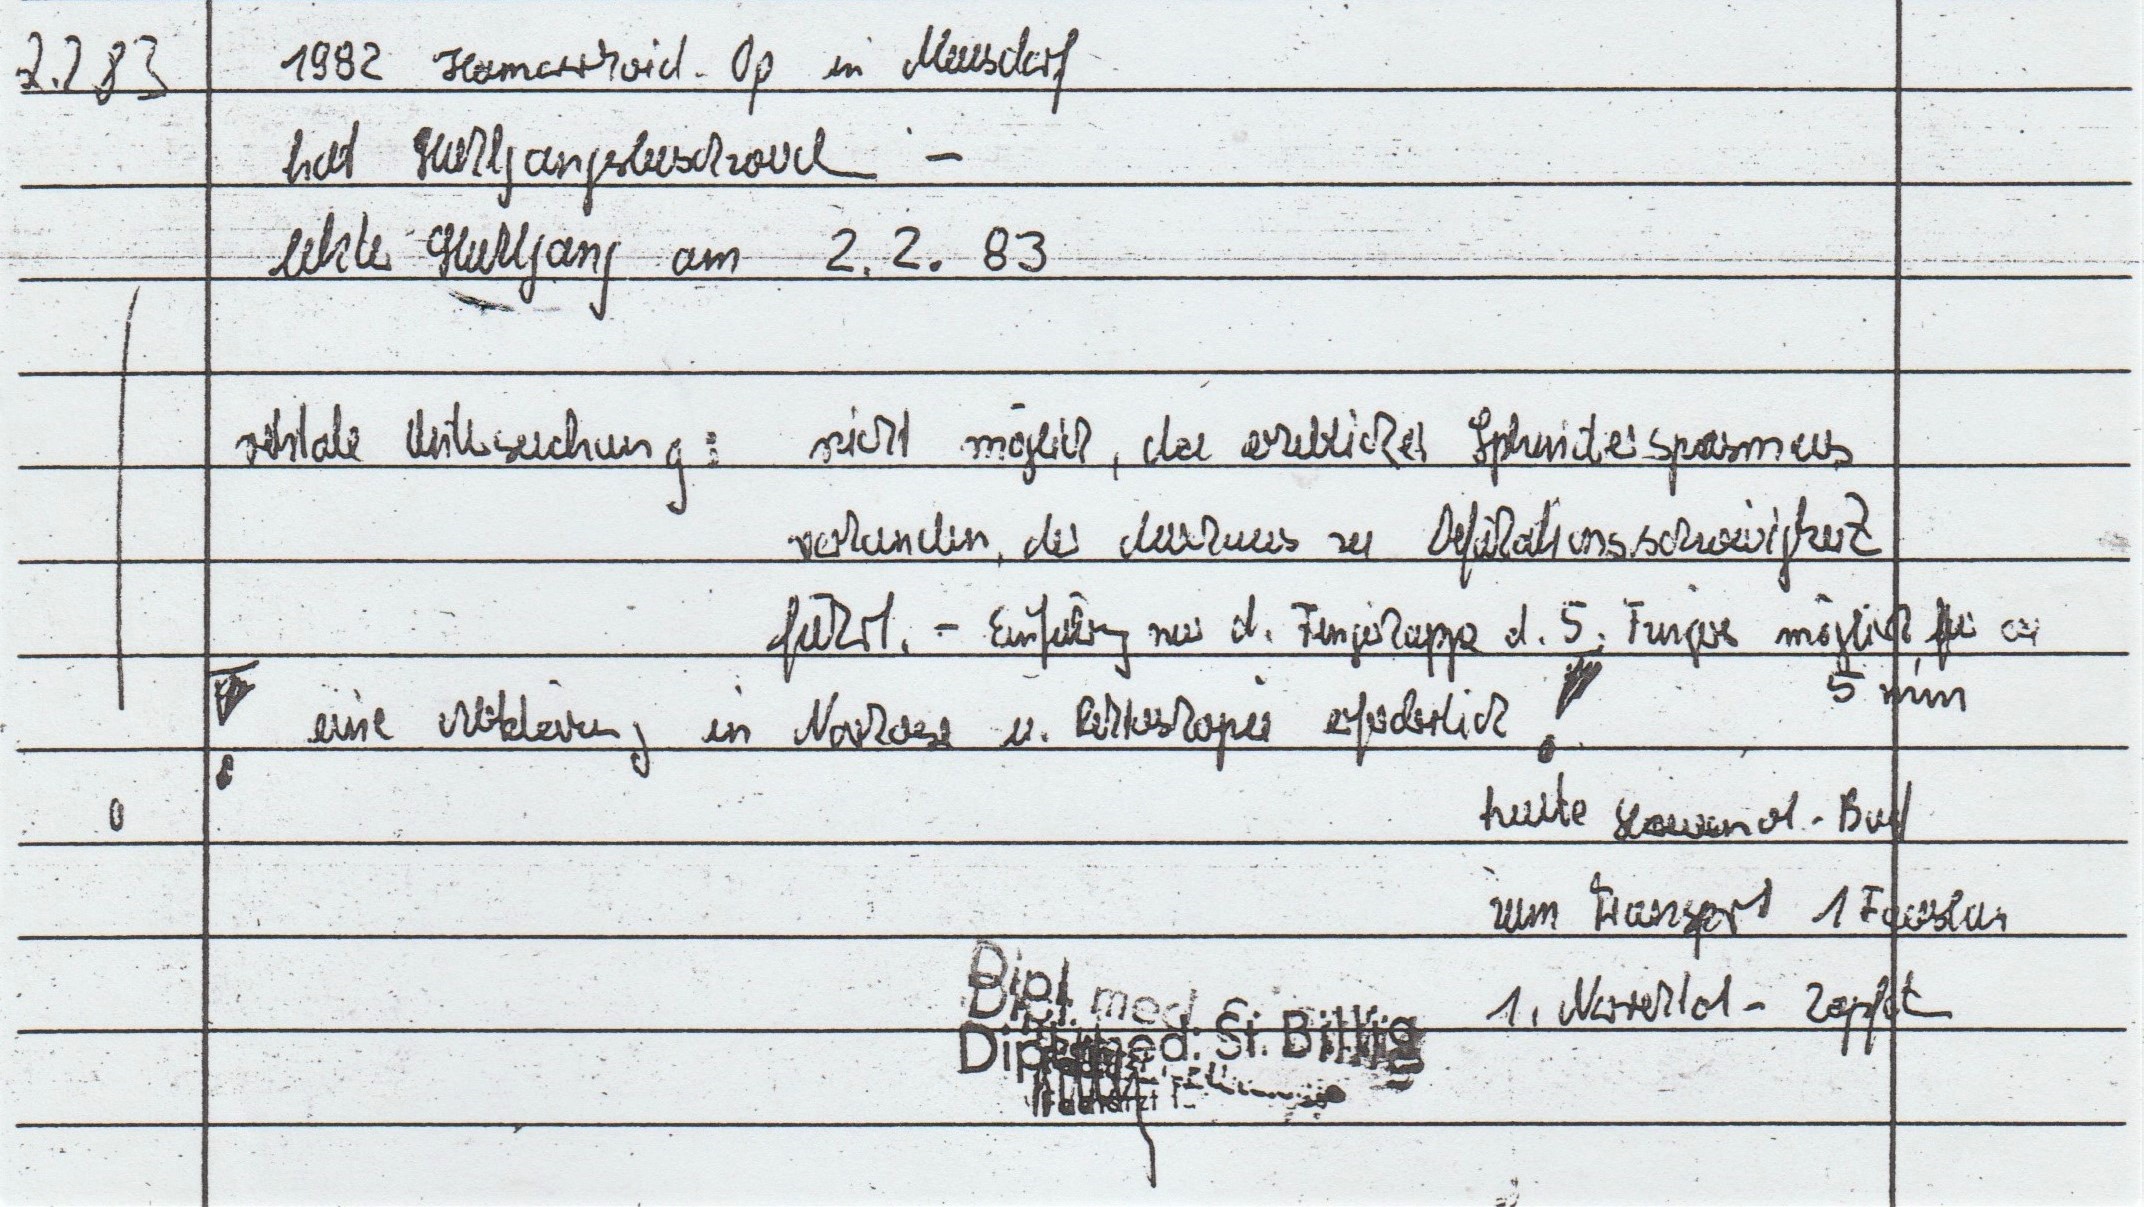 2.2 83 1982 Hämorrhoid.-Op in Meusdorf
hat Stuhlgangsbeschwerd –
letzter Stuhlgang am 2.2.83
rektale Untersuchung: nicht möglich, da erheblicher Sphincterspasmus
vorhanden, der durchaus zu Defäkationsschwierigkeit
führt. – Einführung nur d. Fingerkuppe d. 5. Fingers möglich für ca
5 min
! eine Abklärung in Narkose u. Rektoskopie erforderlich !
heute
zum Transport 1 Faustan
1. - Zäpfch
Dipl. med. St. Billig
Facharzt f.